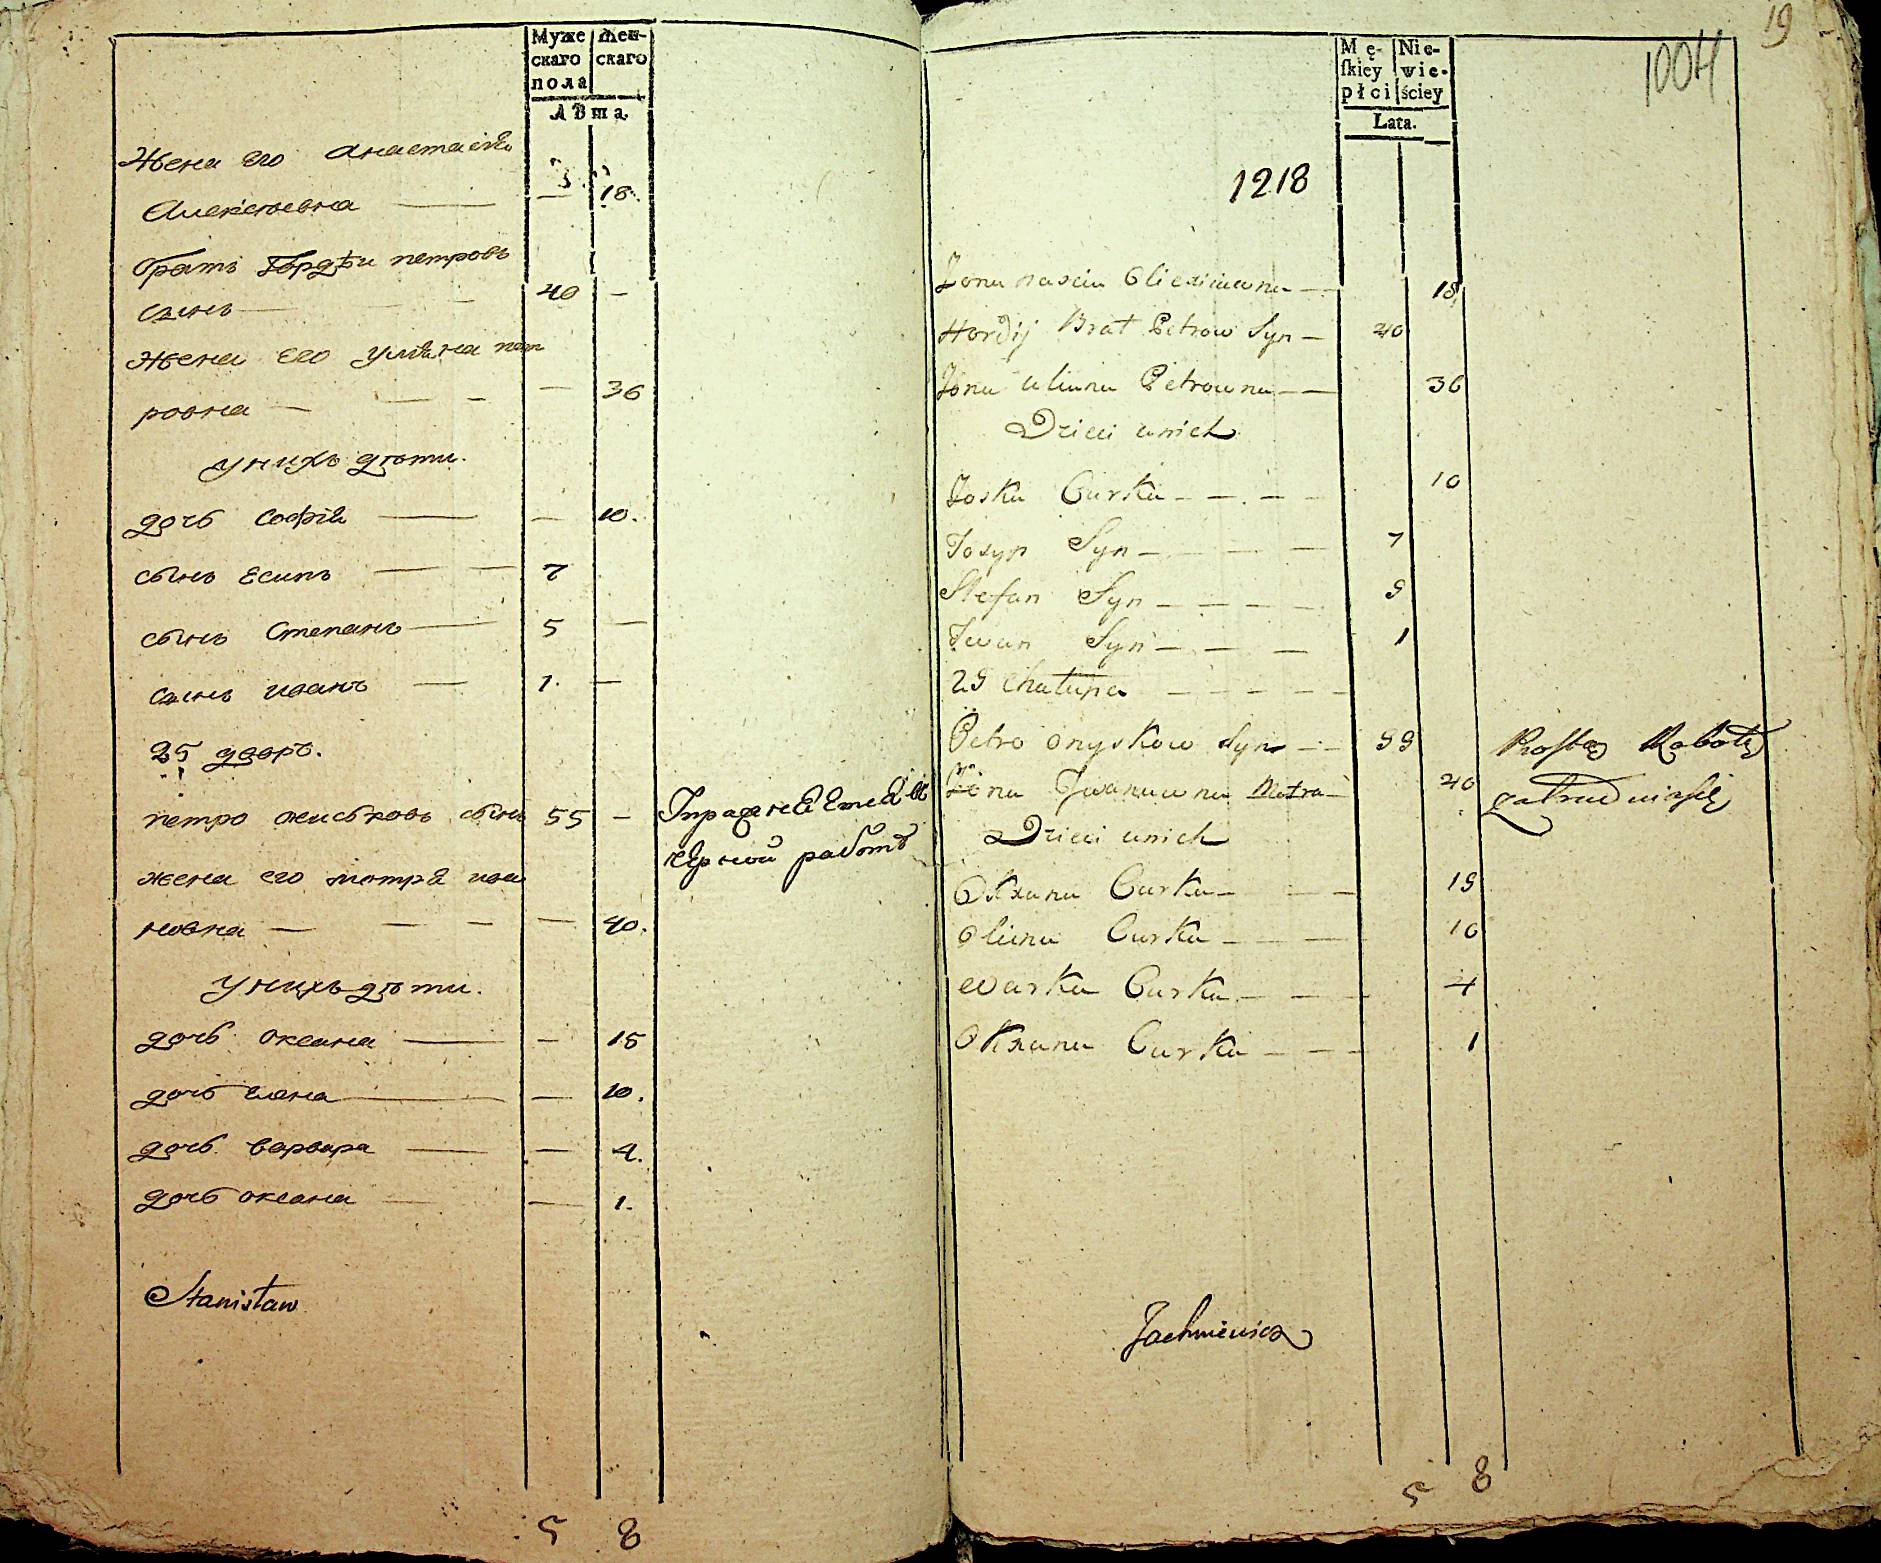 Муже
скаго
пола
Жен-
скаго
Лѣта.
Жена его Анастасія
Алексѣевна — — 18.
братъ Гордѣи петровъ
сынъ — 40 —
Жена его уліяна пет
ровна — — 36
у нихъ дѣти.
дочь Софія — — 10.
сынъ Есипъ — — 7
сынъ Степанъ — 5 —
сынъ иванъ — 1. —
25 дворъ.
петро онисковъ сынъ 55 —
жена его мотря ива
новна — — — — 40.
у нихъ дѣти.
дочь оксана — — 15
дочь елена — — 10.
дочь варвара — — 4.
дочь оксана — — 1.
Упражняется в
чорной работѣ
Stanisław
5 8
19
1004
Mę-
ſkiey
płci
Nie-
wie-
ściey
Lata.
1218
Żona nascia Olexiiewna — 18
Hordij Brat Petrow Syn — 40
Żona Uliana Petrowna — 36
Dzieci unich
Zoska Curka — — — 10
Josyp Syn — — — 7
Stefan Syn — — — — 5
Iwan Syn — — — 1
25 Chałupa — — — — —
Petro onyskow Syn — — 55
Żona Iwanuwna Motra — 40
Dzieci unich
Oxana Curka — — — 15
Oliana Curka — — — 10
Warka Curka — — — 4
Oxana Curka — — — 1
Prostą Robotą
zatrudniaſię
Jachniewicz
5 8